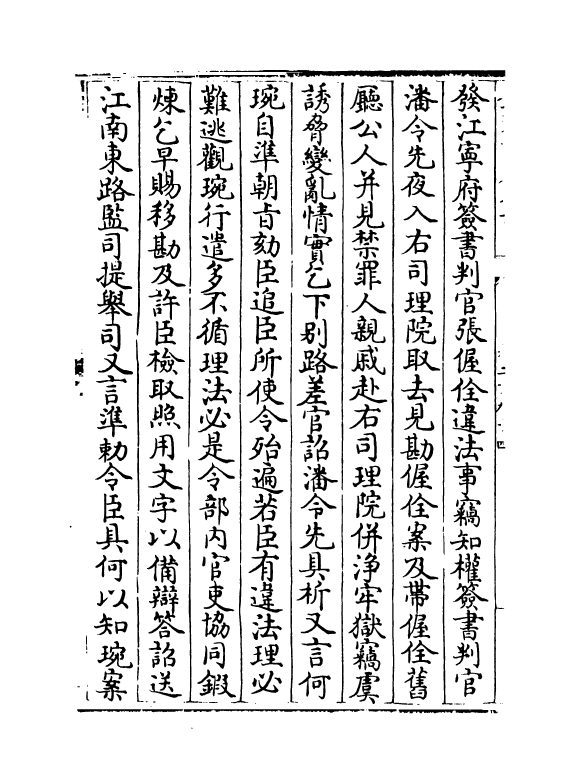 發江寧府簽書判官張偓佺違法事竊知權簽書判官
潘令先夜入右司理院取去見勘偓佺案及帶偓佺舊
廳公人并見禁罪人親戚赴右司理院併淨牢獄竊虞
誘脅變亂情實乞下别路差官詔潘令先具析又言何
琬自準朝旨劾臣追臣所使令殆遍若臣有違法理必
難逃觀琬行遣多不循理法必是令部内官吏協同鍜
煉乞早賜移勘及許臣檢取照用文字以備辯答詔送
江南東路監司提舉司又言準勅令臣具何以知琬案